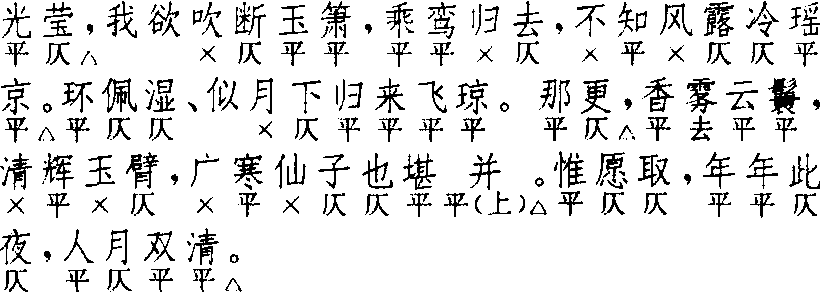 光莹，我欲吹断玉箫，乘鸾归去，不知风露冷瑶
平仄△ ×仄平平 平平×仄 ×平×仄仄平
京。环佩湿、似月下归来飞琼。那更，香雾云鬟，
平△平仄仄 ×仄平平平平 平仄△平去平平
清辉玉臂，广寒仙子也堪并。惟愿取，年年此
×平×仄 ×平×仄仄平平(上)△平仄仄 平平仄
夜，人月双清。
仄 平仄平平△